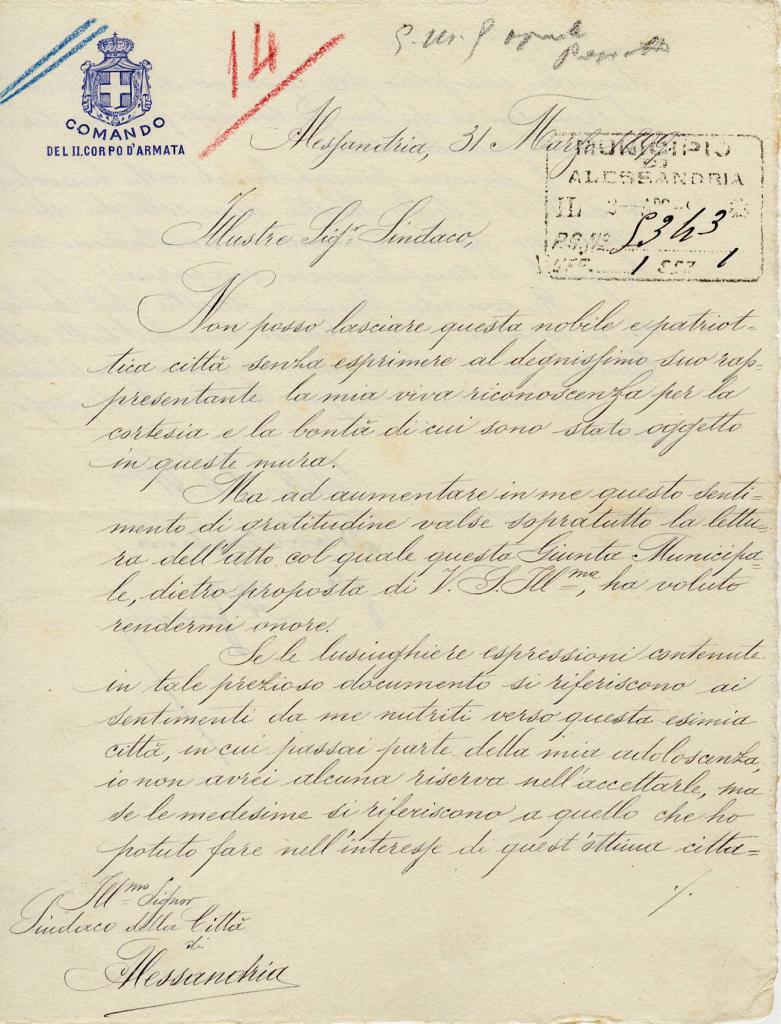 14
COMANDO
DEL II. CORPO D'ARMATA
Alessandria, 31 Marzo
MUNICIPIO
DI
ALESSANDRIA
IL 2
P.G. No. 5343
Illustre Sigr. Sindaco,
Non posso lasciare questa nobile e patriot=
tica città senza esprimere al degnissimo suo rap=
presentante la mia viva riconoscenza per la
cortesia e la bontà di cui sono stato oggetto
in queste mura.
Ma ad aumentare in me questo senti=
mento di gratitudine valse sopratutto la lettu=
ra dell'atto col quale questa Giunta Municipa=
le, dietro proposta di V. S. Illma, ha voluto
rendermi onore.
Se le lusinghiere espressioni contenute
in tale prezioso documento si riferiscono ai
sentimenti da me nutriti verso questa esimia
città, in cui passai parte della mia adoloscenza,
io non avrei alcuna riserva nell'accettarle, ma
se le medesime si riferiscono a quello che ho
potuto fare nell'interesse di quest'ottima citta=
./.
Illmo Signor
Sindaco della Città
di
Alessandria